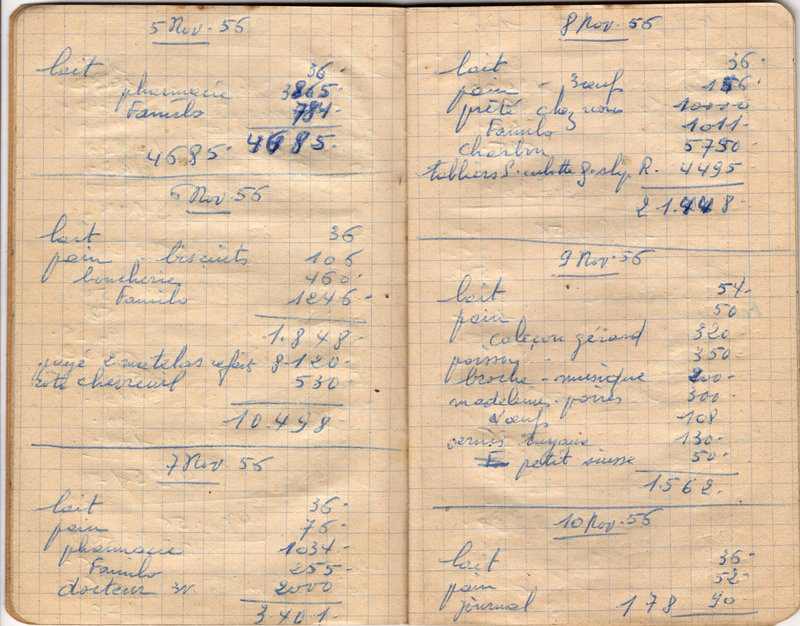 5 Nov. 56
lait 36.
pharmacie 3865.
Familo 784.
4685. 4685.
6 Nov. 56
lait 36
pain - biscuits 106
boucherie 460.
Familo 1246.
1.848.
payé 2 matelas refaits 8.120.
rôti chevreuil 530
10.498
7 Nov. 56
lait 36.
pain 76.
pharmacie 1034.
Familo 255.
docteur 2000
3.401.
8 Nov. 56
lait 36.
pain - 3 œufs 156.
prêté chez vous 10000
Familo 1011.
charbon 5750
tabliers S. culotte g. slip R. 4495.
21.448.
9 Nov. 56
lait 54.
pain 50
caleçon gérard 320
poisson 350
broche - musique 200.
madeleines - poires 300
œufs 108
130.
petit suisse 50.
1.562.
10 Nov. 56
lait 36.
pain 52.
journal 178 90.